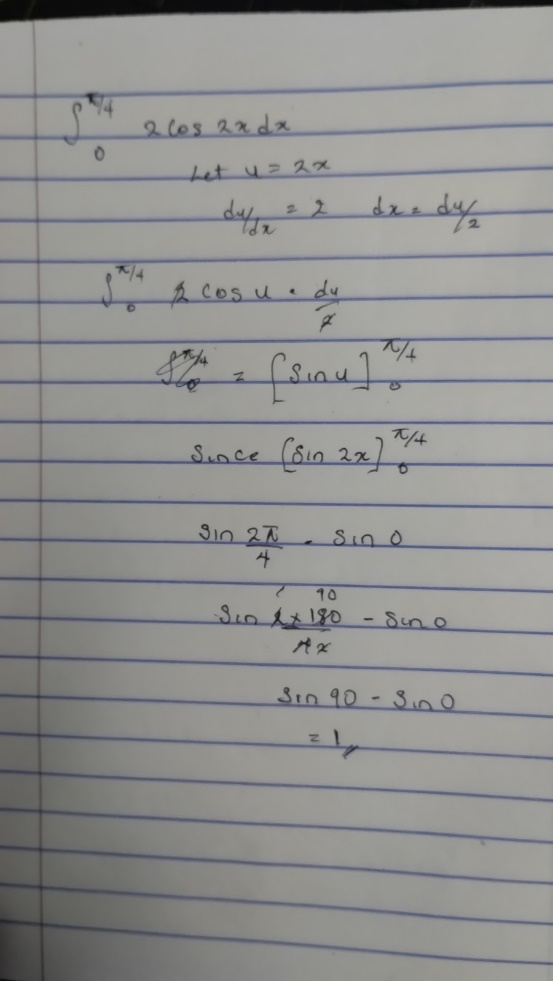 ∫₀^π/4 2 cos 2x dx
Let u = 2x
du/dx = 2 dx = du/2
∫₀^π/4 2 cos u · du/2
= [sin u]₀^π/4
Since [sin 2x]₀^π/4
sin 2π/4 - sin 0
sin 2 × 180/4 - sin 0
sin 90 - sin 0
= 1